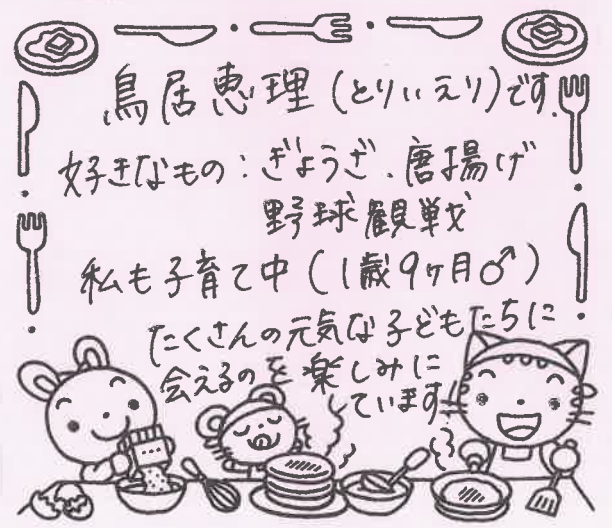 鳥居恵理(とりいえり)です.
好きなもの:ぎょうざ、唐揚げ
野球観戦
私も子育て中(1歳9ヶ月♂)
たくさんの元気な子どもたちに
会えるのを楽しみに
しています!